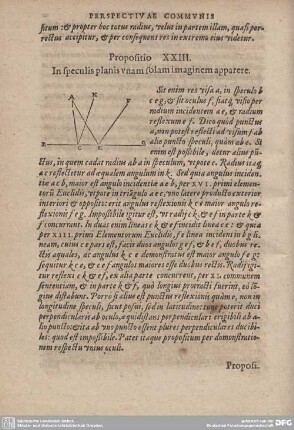 PERSPECTIVAE COMMVNIS
situm: & propter hoc totus radius, velut in partem illam, quasi por-
rectus accipitur, & per consequens res in extremo eius videtur.
Propositio XXIII.
In speculis planis vnam solam imaginem apparere.
A K F
B C E G
Sit enim res visa a, in speculo b
c e g, & sit oculus f, fiatq́; visio per
radium incidentem a e, & radium
reflexum e f. Dico quòd punctus
a, non potest reflecti ad visum f ab
alio puncto speculi, quàm ab e. Si
enim est possibile, detur alius pun-
ctus, in quem cadat radius ab a in speculum, vtpote c. Radius itaq́;
a c reflectetur ad aequalem angulum in k. Sed quia angulus inciden-
tiae a c b, maior est angulo incidentiae a e b, per XVI. primi elemen-
torum Euclidis, vtpote in triangulo a e c, vno latere producto exterior
interiori & opposito: erit angulus reflexionis k c e maior angulo re-
flexionis f e g. Impossibile igitur est, vt radij c k, & e f in parte k &
f concurrant. In duas enim lineas c k & e f incidit linea c e: & quia
per XIII. primi Elementorum Euclidis,
neam, cuius c e pars est, facit duos angulos g e f, & b e f, duobus re-
ctis aequales, at angulus k c e demonstratus est maior angulo f e g:
sequitur k c e, & c e f angulos maiores esse duobus rectis. Radij igi-
tur reflexi c k & e f, ex alia parte concurrent, per
sententiam, & in parte k & f, quò longius protracti fuerint, eò lon-
gius distabunt. Porrò si alius est punctus reflexionis quàm e, non in
longitudine speculi, sicut posui, sed in latitudine: tunc poterit duci
perpendicularis ab oculo, & quidistans perpendiculari erigibili ab a-
lio puncto: & ita ab vno puncto essent plures perpendiculares ducibi-
les: quod est impossibile. Patet itaque propositum per demonstratio-
nem respectu vnius oculi.
Proposi.